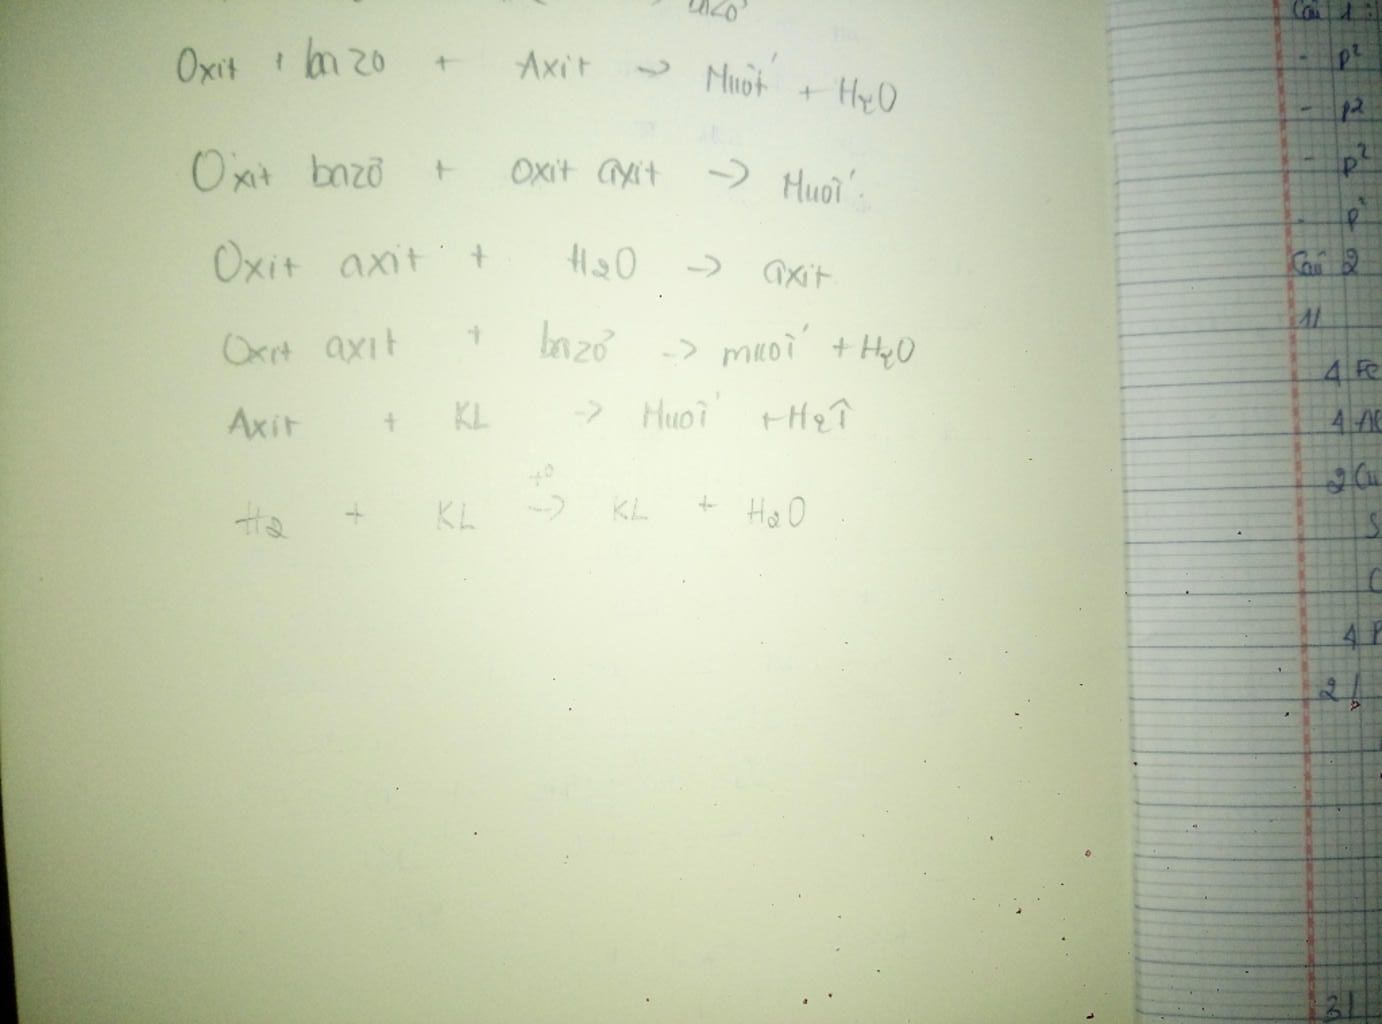 bazơ
Oxit + bazo + Axit -> Muối + H2O
Oxit bazơ + oxit axit -> Muối.
Oxit axit + H2O -> axit
Oxit axit + bazơ -> muối + H2O
Axit + KL -> Muối + H2↑
H2 + KL -t°-> KL + H2O
Câu 1:
- p2
- p2
- p2
- p
Câu 2
1/
4 Fe
4 Al
2 Cu
S
C
4 P
2/
3/